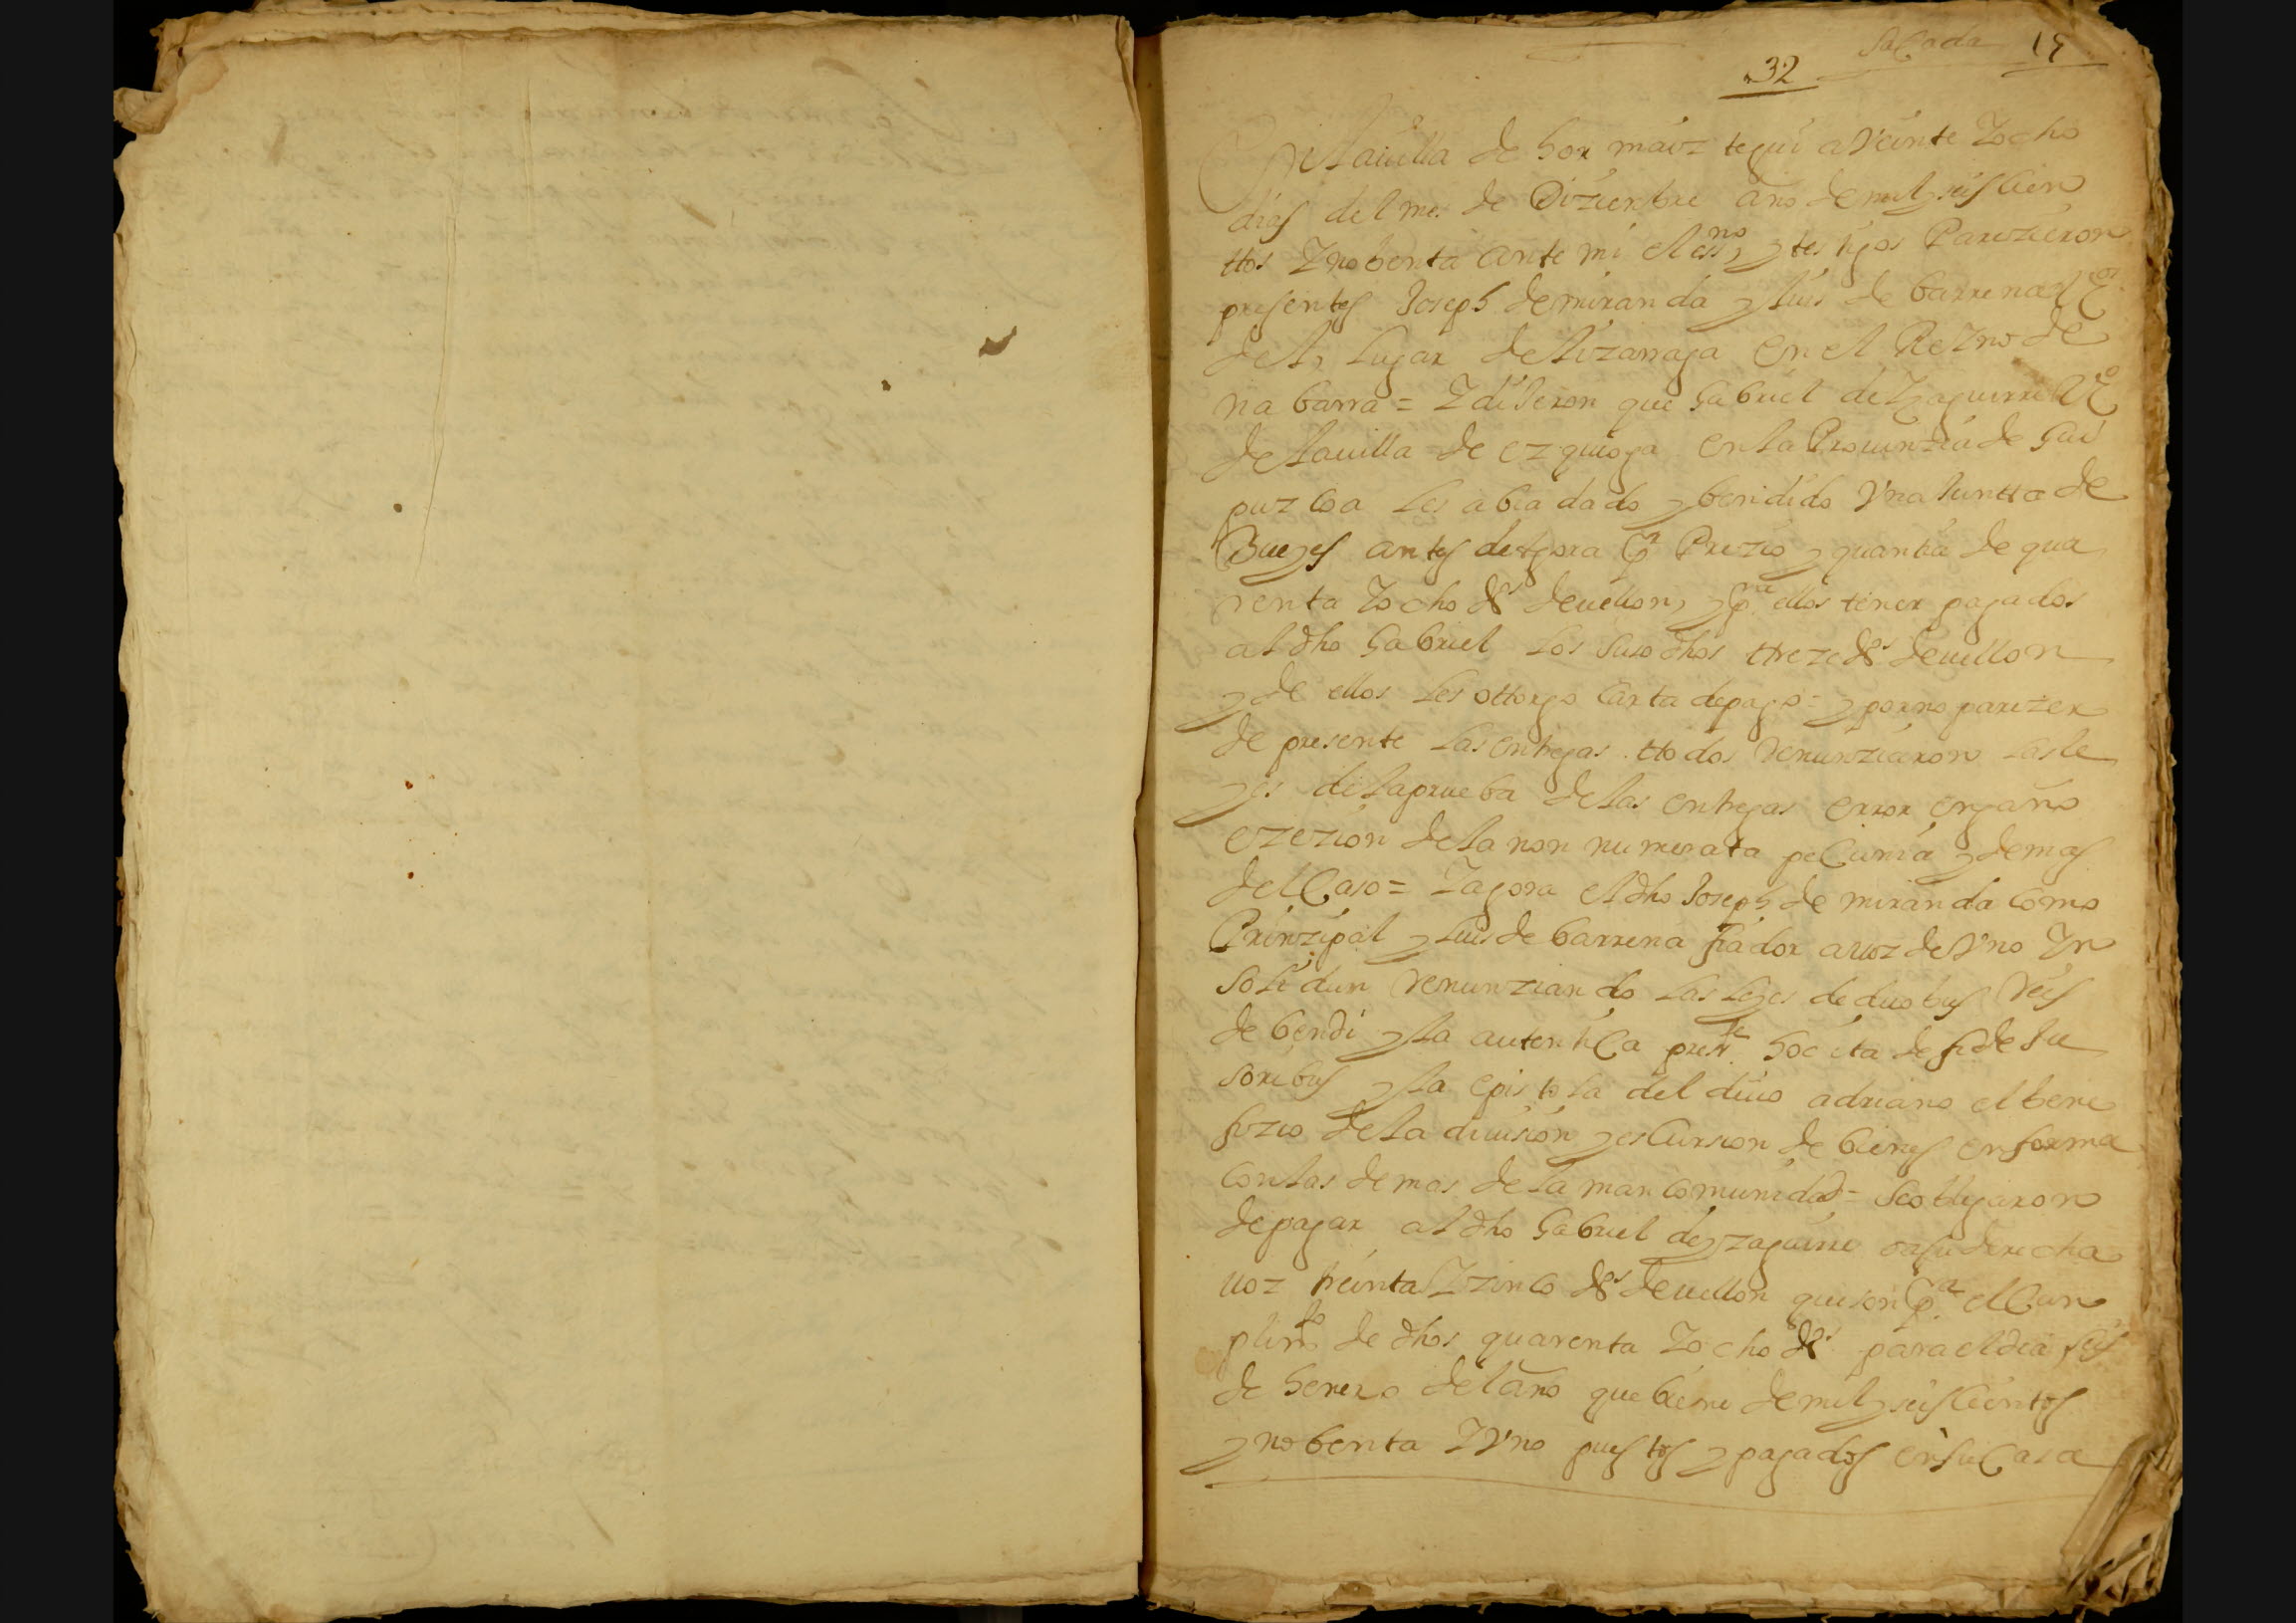 Sacada 15
32
En la uilla de hormaiztegui a Veinte Y ocho
dias del mes de Dizienbre año de mil y seis cien
ttos Y nobenta ante mi el essno y testigos Parezieron
presentes Joseph de miranda y luis de barrena Vos
del lugar de lizarraga en el Reyno de
nabarra = Y dijeron que Gabriel de Yzaguirre Vo
de la uilla de ezquioga en la Prouinzia de Gui
puzcoa les abia dado y bendido Vna Juntta de
Bueyes antes de agora Pr Prezio y quantia de qua
renta Y ocho ds de uellon, y pra ellos tener pagados
al dho Gabriel los suso dhos treze ds de uellon
y de ellos les ottorgo Carta de pago = y por no parezer
de presente las entregas ttodos Renunziaron las le
yes de la prueba de las entregas error engaño
ezezion de la non numerata peCunia y demas
del Caso = Y agora el dho Joseph de miranda como
Prinzipal y luis de barrena fiador a uoz de Vno Yn
solidun Renunziando las leyes de duobus Reis
de bendi y la autentiCa preste hoc ita de fide Ju
soribus y la epistola del diuo adriano el bene
fizio de la diuision y esCursion de bienes en forma
con las demas de la mancomunidad = se obligaron
de pagar al dho Gabriel de Yzaguirre o a su derecha
uoz treinta Y zinco ds de uellon que son pra el Cun
plimto de dhos quarenta Y ocho ds para el dia seis
de henero del año que biene de mil y seis Cientos
y nobenta Y Vno puestos y pagados en su Casa